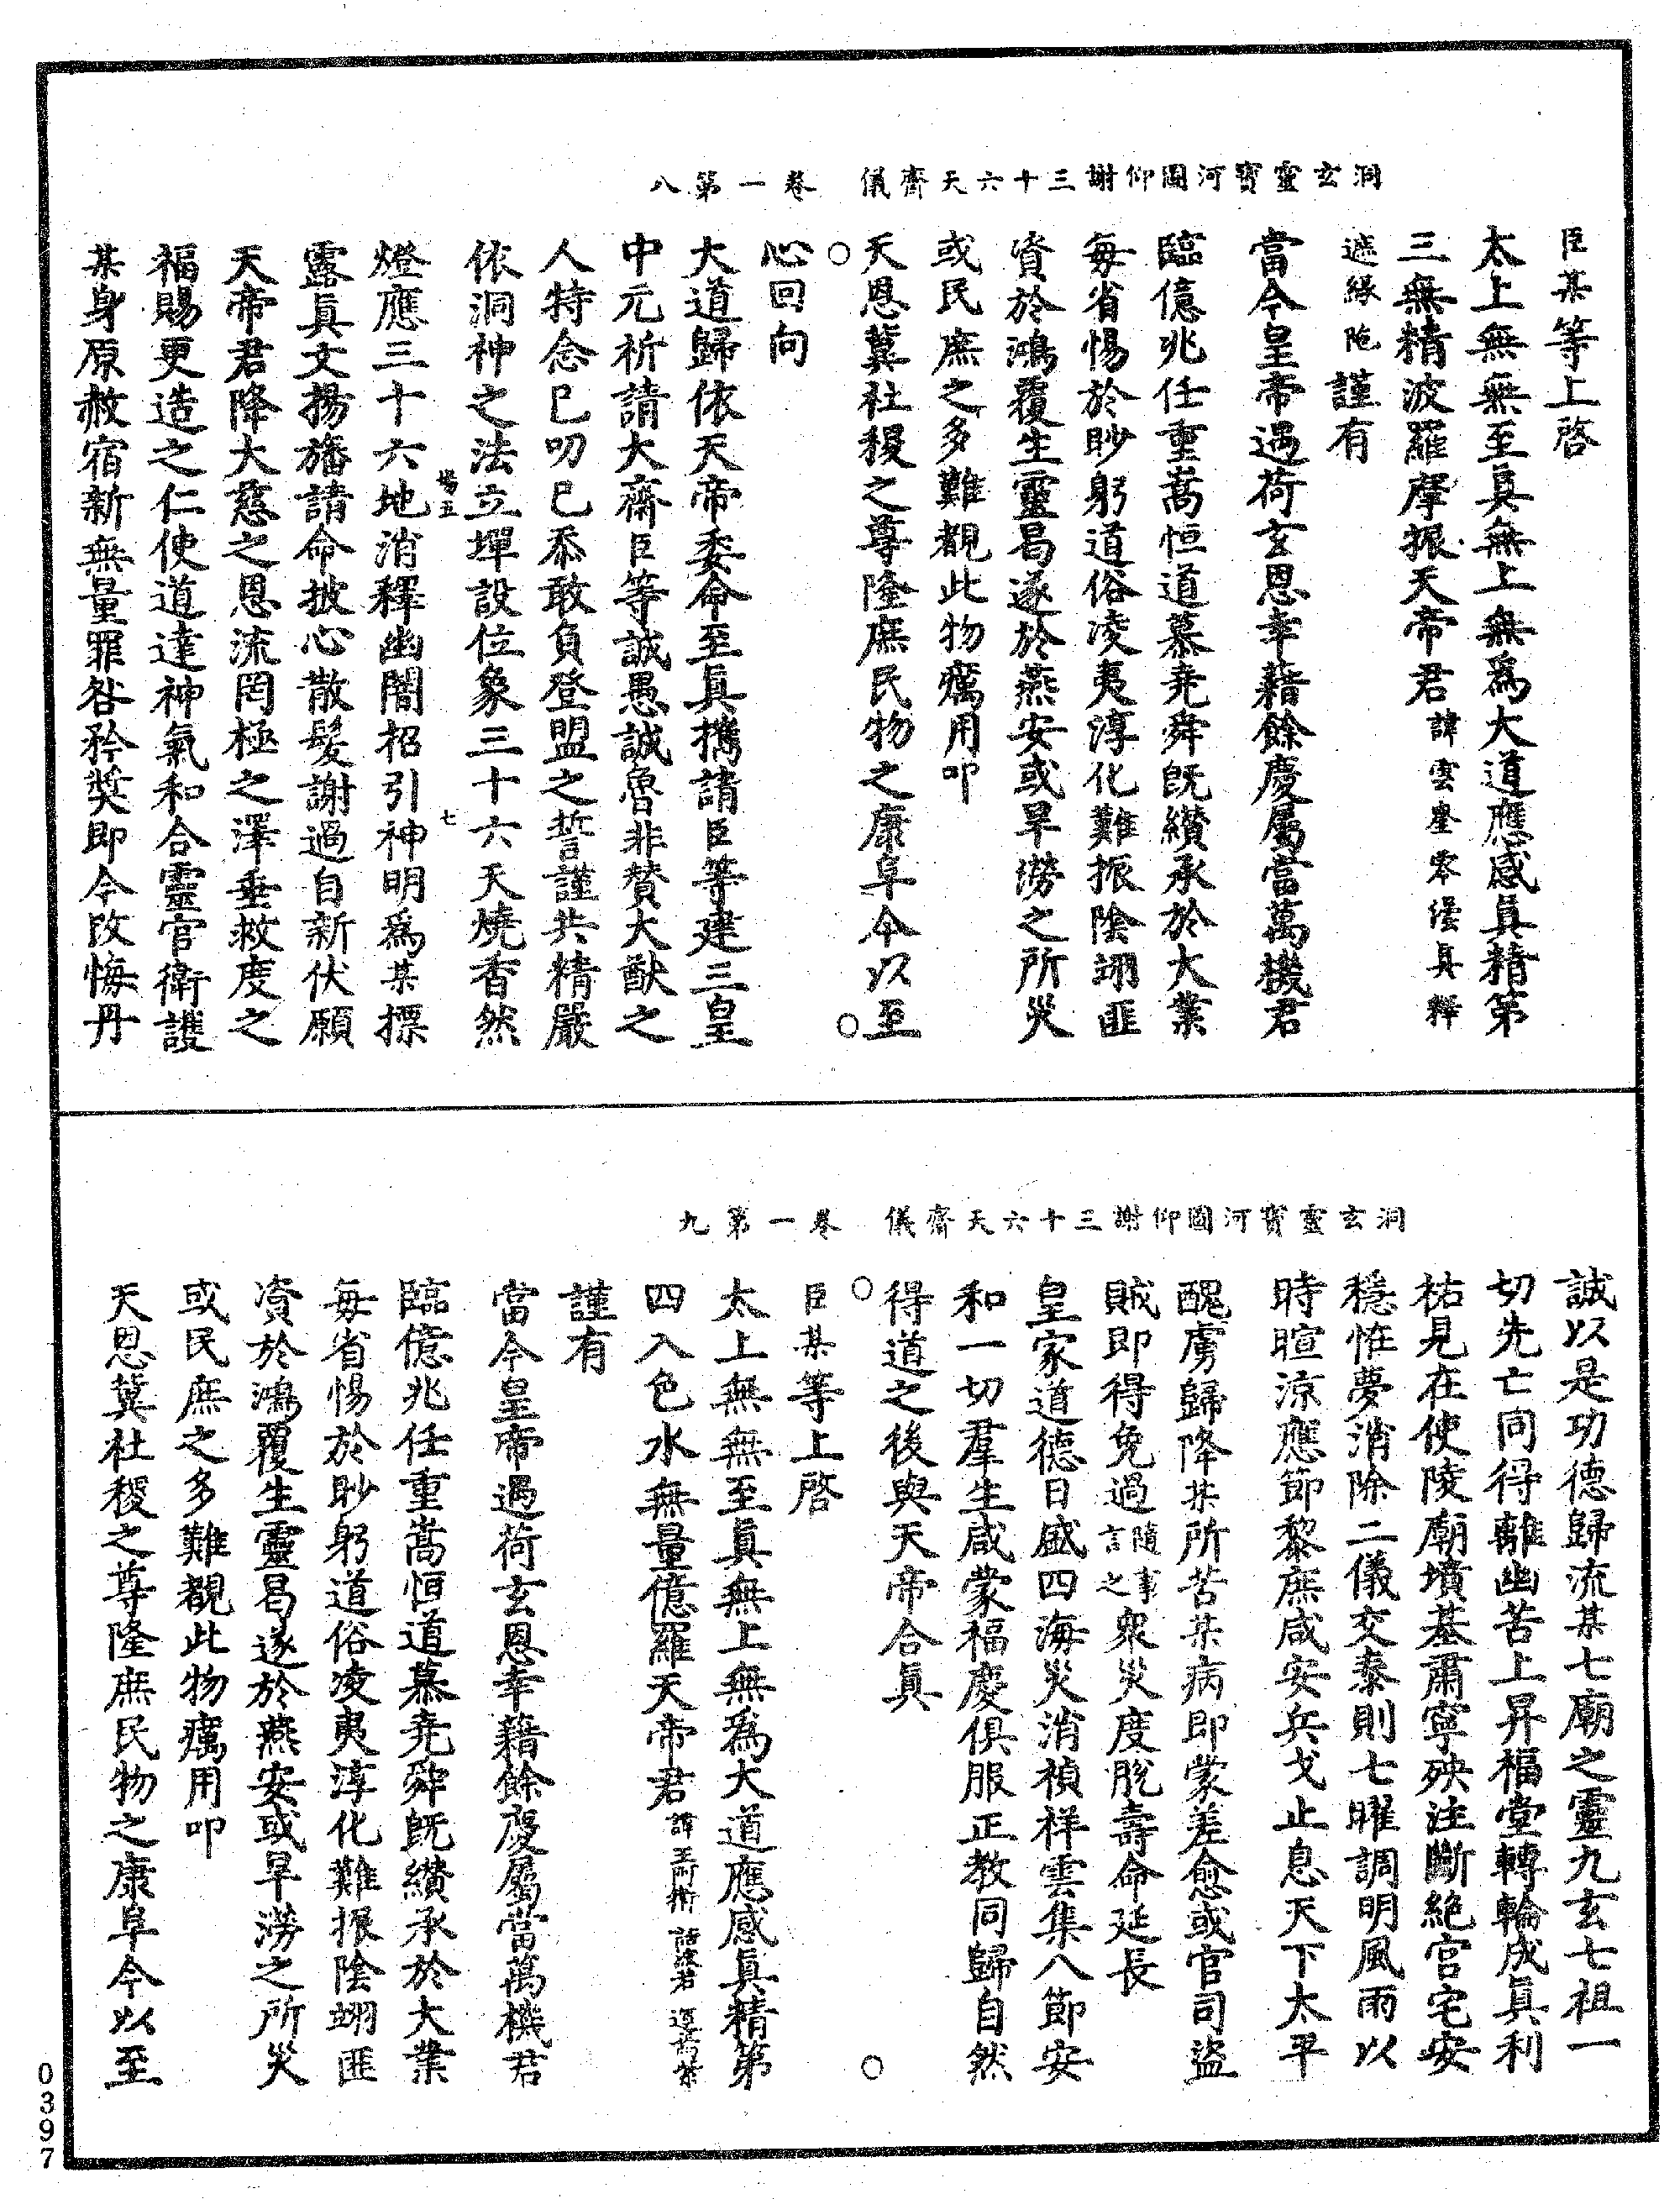 洞玄靈寶河圖仰謝三十六天齋儀　卷一第八
臣某等上啓
太上無無至眞無上無爲大道應感眞精第
三無精波羅摩振天帝君諱雲 零 眞釋
遮緣陁謹有
當今皇帝遇荷玄恩幸藉餘慶屬當萬機君
臨億兆任重嵩恒道慕堯舜旣纘承於大業
每省惕於眇躬道俗凌夷淳化難振陰翊匪
資於鴻覆生靈曷遂於燕安或旱澇之所災
或民庶之多難覩此物癘用叩
天恩冀社稷之尊隆庶民物之康阜今以至
心回向
大道歸依天帝委命至眞攜請臣等建三皇
中元祈請大齋臣等誠愚誠魯非贊大猷之
人特念已叨已忝敢負登盟之誓謹共精嚴
依洞神之法立墠設位象三十六天燒香然
五
七
燈應三十六地消釋幽闇招引神明爲某摽
露眞文揚旛請命披心散髮謝過自新伏願
天帝君降大慈之恩流罔極之澤垂救度之
福賜更造之仁使道達神氣和合靈官衛護
某身原赦宿新無量罪咎矜奬即今改悔丹
洞玄靈寶河圖仰謝三十六天齋儀　卷一第九
誠以是功德歸流某七廟之靈九玄七祖一
切先亡同得離幽苦上昇福堂轉輪成眞利
祐見在使陵廟墳基肅寧殃注斷絕宮宅安
穩恠夢消除二儀交泰則七曜調明風雨以
時暄涼應節黎庶咸安兵戈止息天下太平
醜虜歸降某所苦某病即蒙差愈或官司盜
賊即得免過隨事言之衆災度脫壽命延長
皇家道德日盛四海災消禎祥雲集八節安
和一切羣生咸蒙福慶俱服正教同歸自然
得道之後與天帝合眞
臣某等上啓
太上無無至眞無上無爲大道應感眞精第
四入色水無量億羅天帝君諱
謹有
當今皇帝遇荷玄恩幸藉餘慶屬當萬機君
臨億兆任重嵩恒道慕堯舜旣纘承於大業
每省惕於眇躬道俗凌夷淳化難振陰翊匪
資於鴻覆生靈曷遂於燕安或旱澇之所災
或民庶之多難覩此物癘用叩
天恩冀社稷之尊隆庶民物之康阜今以至
0397